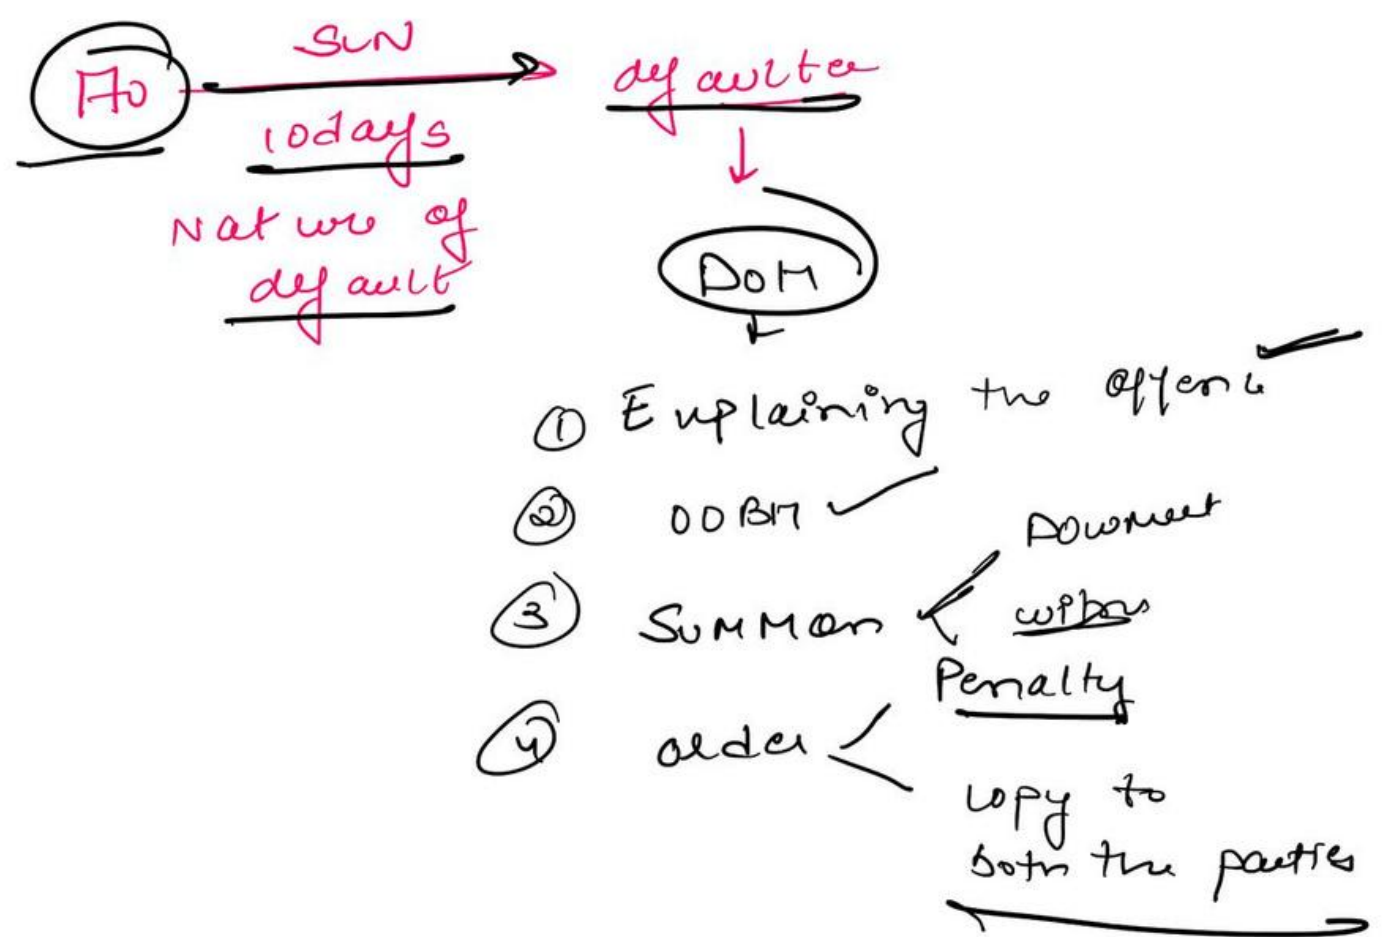 AO
SCN
10days
Nature of
default
defaulter
DOH
① Explaining the offence
② OOBH
③ Summon
Document
witness
④ order
Penalty
copy to
both the parties